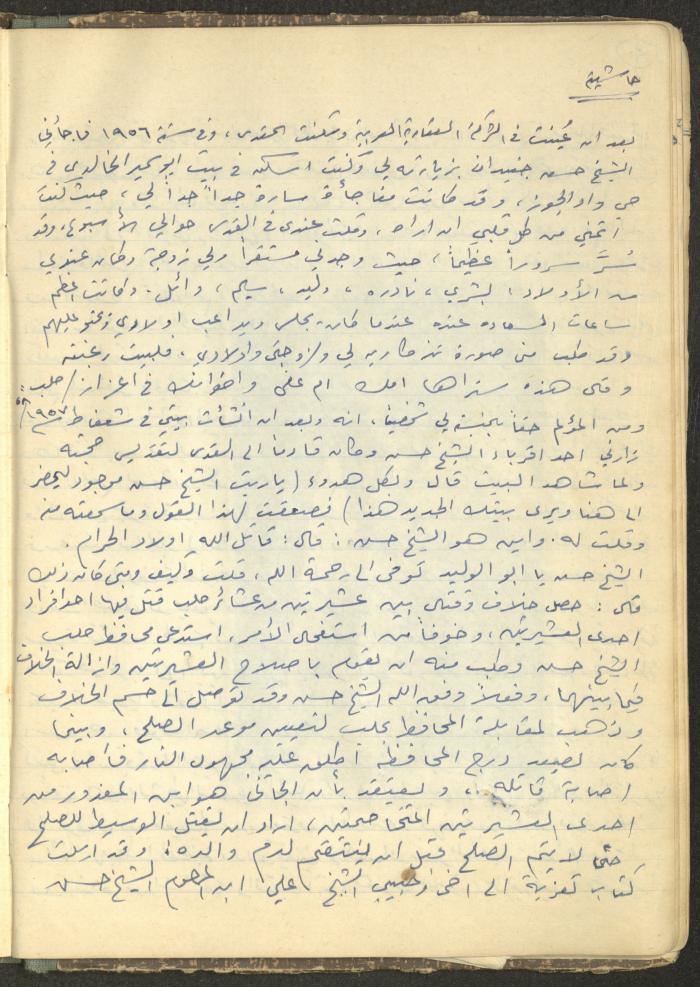 حاشية
بعد ان عُينت في الشركة العقارية العربية وسكنت القدس، وفي سنة ١٩٥٦ فاجأني
الشيخ حسن جنيدان بزيارته لي وكنت اسكن في بيت ابو سمير الخالدي في
حي واد الجوز، وقد كانت مفاجأة سارة جداً جداً لي، حيث كنت
أتمنى من كل قلبي ان اراه، وظلت عندي في القدس حوالي الأسبوع، وقد
سُرَّ سروراً عظيماً، حيث وجدني مستقراً ولي زوجة وكان عندي
من الأولاد، بشرى، نادره، وليد، سليم، وائل. وكانت اعظم
ساعات السعاده عنده عندما كان يجلس ويداعب اولادي ويحنو عليهم
وقد طلب مني صورة تذكاريه لي ولزوجتي واولادي، فلبيت رغبته
وقال هذه ستراها امك ام علي واخوانك في اعزاز/حلب.
ومن المؤلم حقاً بالنسبة لي شخصياً، انه وبعد ان انشأت بيتي في شعفاط ١٩٥٧/٥٨
زارني احد اقرباء الشيخ حسن وكان قادماً الى القدس لتقديس حجته
ولما شاهد البيت قال وبكل هدوء (ياريت الشيخ حسن موجود ليحضر
الى هنا ويرى بيتك الجديد هذا) فصعقت لهذا القول وما سمعته منه
وقلت له. واين هو الشيخ حسن: قال: قاتل الله اولاد الحرام.
الشيخ حسن يا ابو الوليد توفى الى رحمة الله، قلت وكيف ومتى كان ذلك
قال: حصل خلاف وقتال بين عشيرتين من عشائر حلب قتل فيها احد افراد
احدى العشيرتين، وخوفاً من استفحال الأمر، استدعى محافظ حلب
الشيخ حسن وطلب منه ان يقوم باصلاح العشيرتين وازالة الخلاف
فيما بينهما، وفعلاً وفق الله الشيخ حسن وقد توصل الى حسم الخلاف
وذهب لمقابلة المحافظ بحلب لتعيين موعد الصلح، وبينما
كان يصعد درج المحافظة اطلق عليه مجهول النار فأصابه
اصابة قاتله، ويعتقد بأن الجاني هو ابن المغدور من
احدى العشيرتين المتخاصمتين، اراد ان يقتل الوسيط للصلح
حتى لا يتم الصلح قبل ان ينتقم لدم والده! وقد ارسلت
كتاب تعزية الى اخي وحبيبي الشيخ علي ابن المرحوم الشيخ حسن